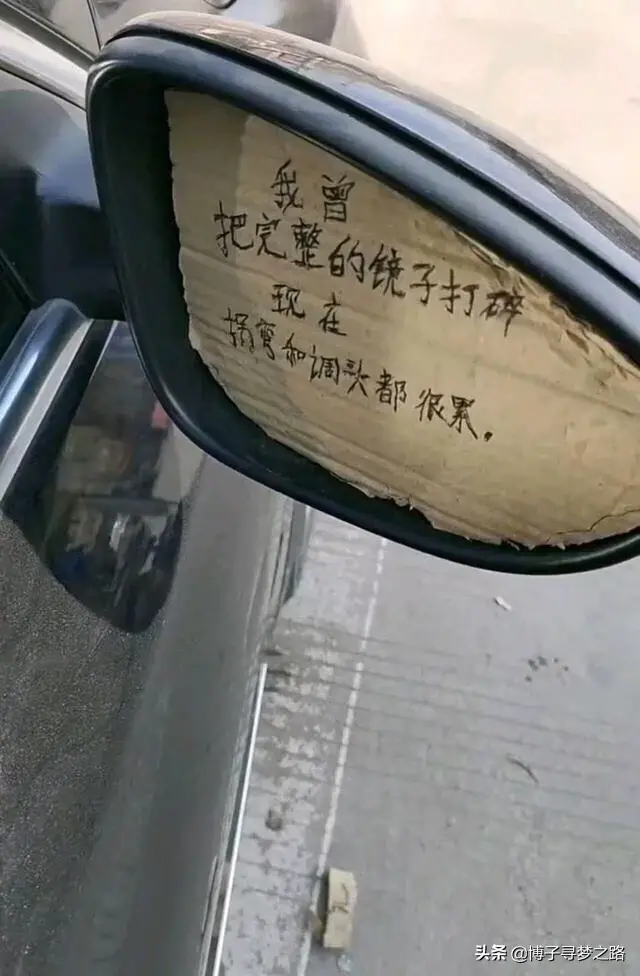 我曾
把完整的镜子打碎
现在
拐弯和调头都很累.
头条 @博子寻梦之路